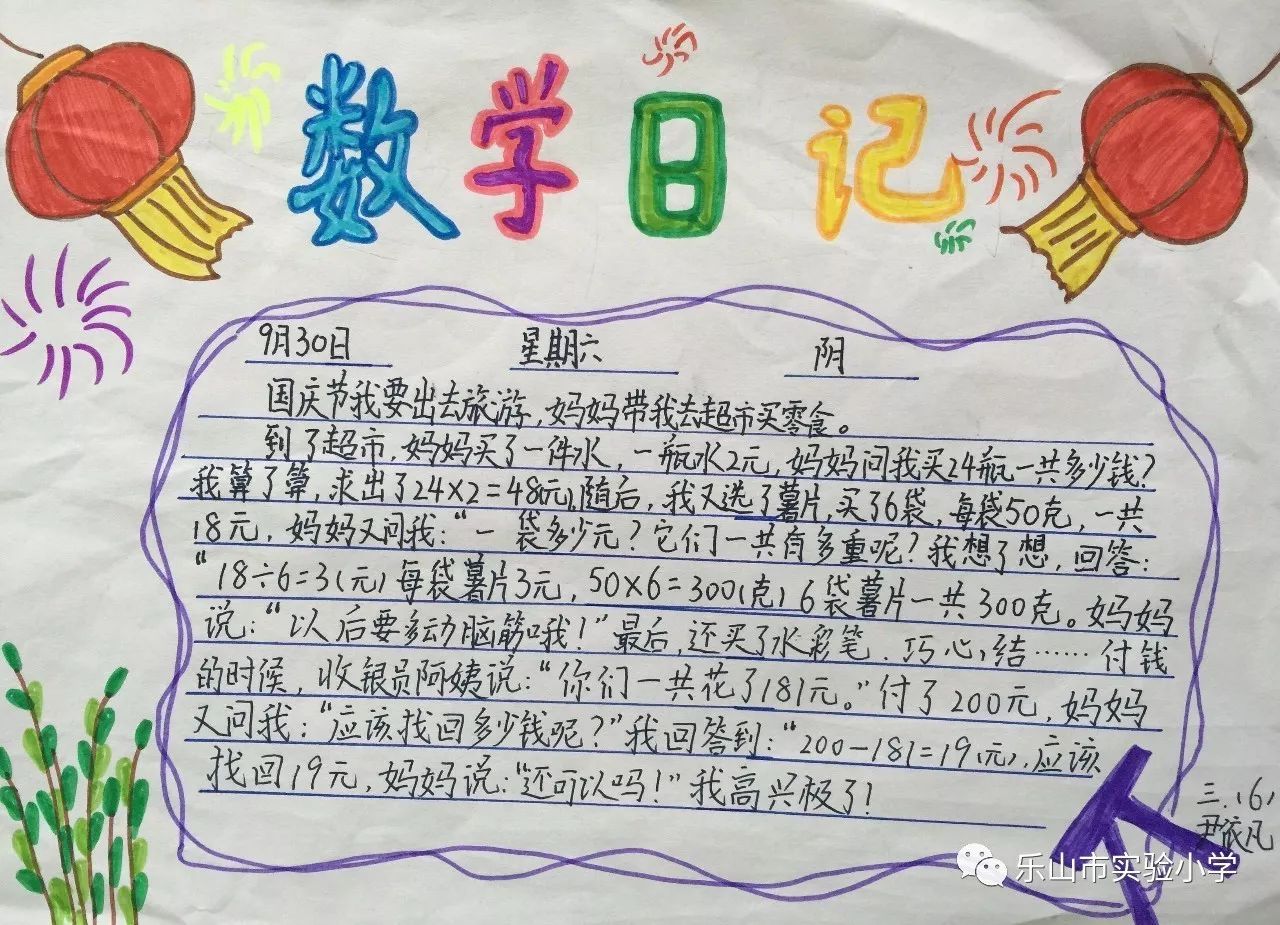 数学日记
9月30日 星期六 阴
国庆节我要出去旅游,妈妈带我去超市买零食。
到了超市,妈妈买了一件水,一瓶水2元,妈妈问我买24瓶一共多少钱?
我算了算,求出了24×2=48(元),随后,我又选了薯片,买了6袋,每袋50克,一共
18元,妈妈又问我:“一袋多少元?它们一共有多重呢?我想了想,回答:
“18÷6=3(元)每袋薯片3元,50×6=300(克)6袋薯片一共300克。妈妈
说:“以后要多动脑筋哦!”最后,还买了水彩笔、巧心结……付钱
的时候,收银员阿姨说:“你们一共花了181元。”付了200元,妈妈
又问我:“应该找回多少钱呢?”我回答到:“200-181=19(元),应该
找回19元,妈妈说:“还可以吗!”我高兴极了!
三.(6)
尹依凡
乐山市实验小学